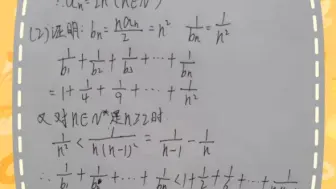 ∴ aₙ=2n (n∈N*)
(2)证明: bₙ = naₙ/2 = n² 1/bₙ = 1/n²
1/b₁ + 1/b₂ + 1/b₃ + ⋯ + 1/bₙ
= 1 + 1/4 + 1/9 + ⋯ + 1/n²
又对n∈N*是n≥2时
1/n² < 1/n(n-1) = 1/n-1 - 1/n
∴ 1/b₁ + 1/b₂ + ⋯ + 1/bₙ < 1 + 1/2 +